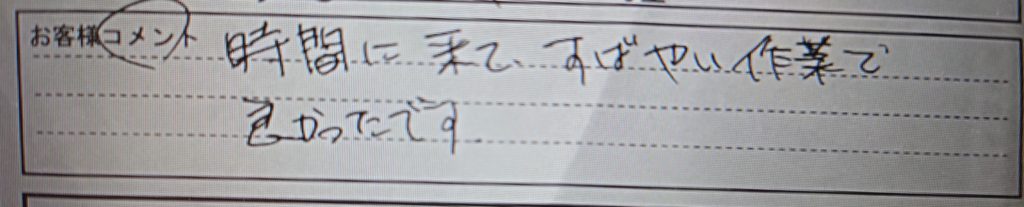 お客様コメント 時間に来て、すばやい作業で
良かったです